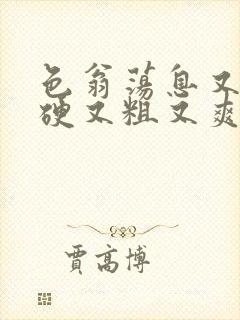 色翁荡息又
硬又粗又爽
贾高博